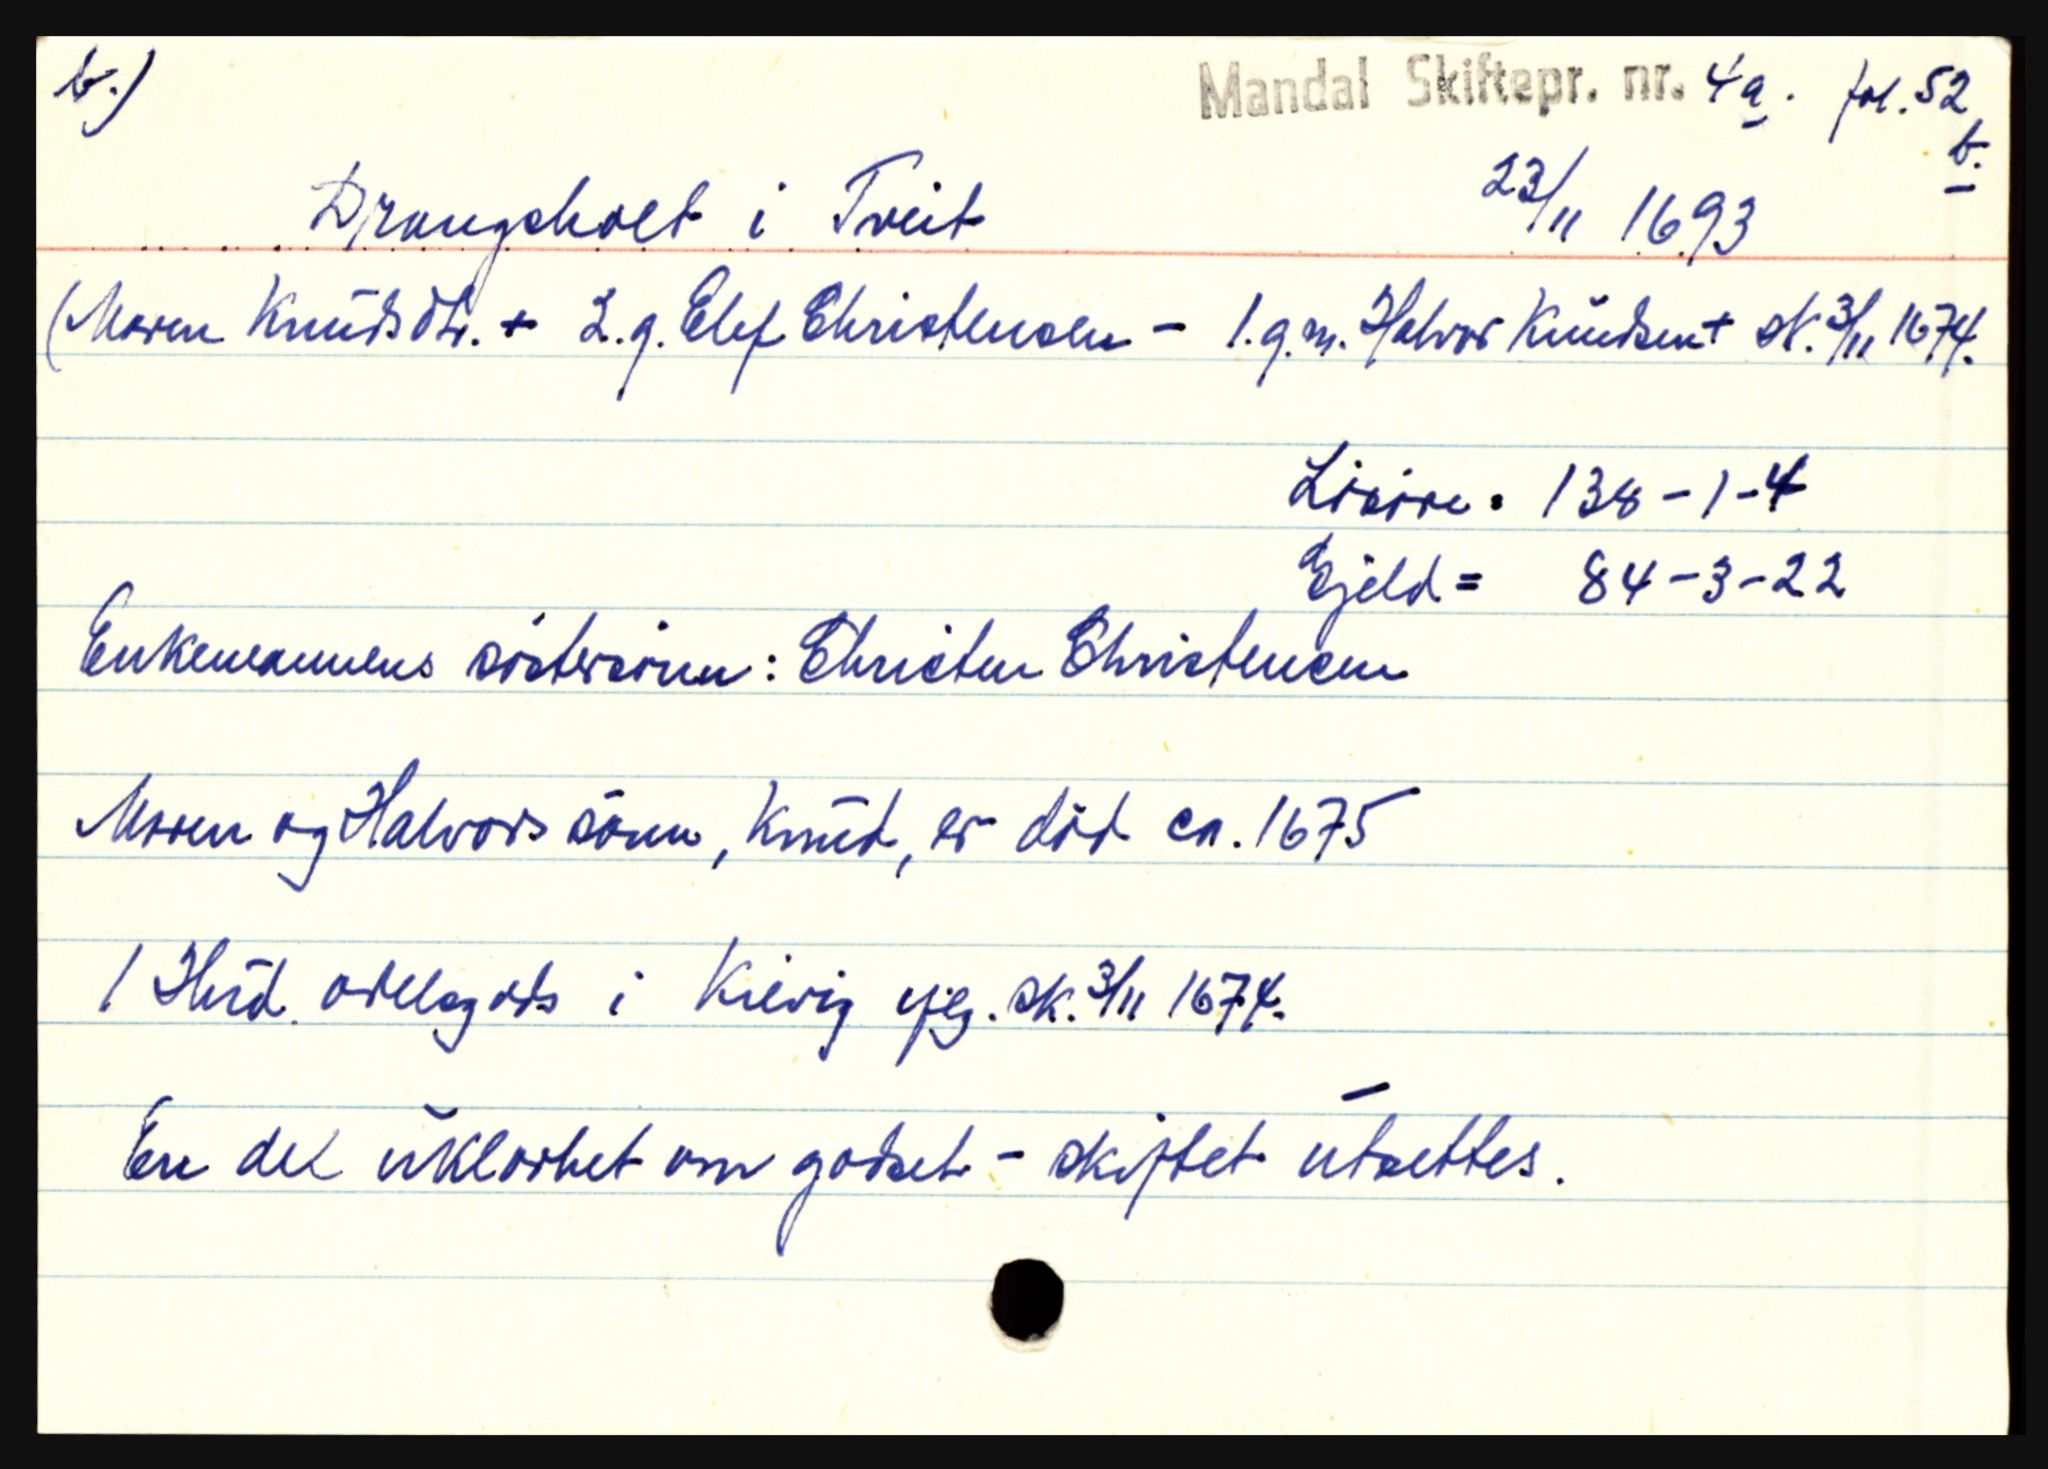 b.)
Mandal Skiftepr. nr. 4a. fol. 52 b.
Drangsholt i Tveit 23/11 1693
(Maren Knudsdtr. + 2.g. Elef Christensen - 1.g.m. Halvor Knudsen + sk. 3/11 1674.
Lösöre. 138-1-4
Gjeld = 84-3-22
Enkemannens söstersönn: Christen Christensen
Maren og Halvors sönn, Knud, er död ca. 1675
1 Hud. odelsgods i Kievig sk. 3/11 1674.
En del uklarhet om godset - skiftet utsettes.